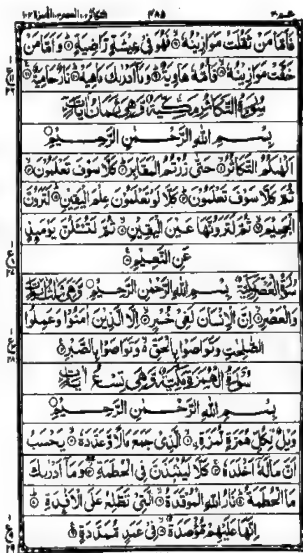 فَاَمَّا مَنْ ثَقُلَتْ مَوَازِيْنُهٗ ۙ فَهُوَ فِيْ عِيْشَةٍ رَّاضِيَةٍ ؕ وَاَمَّا مَنْ
خَفَّتْ مَوَازِيْنُهٗ ۙ فَاُمُّهٗ هَاوِيَةٌ ؕ وَمَاۤ اَدْرٰىكَ مَاهِيَهْ ؕ نَارٌ حَامِيَةٌ
سُوْرَةُ التَّكَاثُرِ مَكِّيَّةٌ وَّهِيَ ثَمَانُ اٰيَاتٍ
بِسْمِ اللهِ الرَّحْمٰنِ الرَّحِيْمِ
اَلْهٰىكُمُ التَّكَاثُرُ ۙ حَتّٰى زُرْتُمُ الْمَقَابِرَ ؕ كَلَّا سَوْفَ تَعْلَمُوْنَ ۙ
ثُمَّ كَلَّا سَوْفَ تَعْلَمُوْنَ ؕ كَلَّا لَوْ تَعْلَمُوْنَ عِلْمَ الْيَقِيْنِ ؕ لَتَرَوُنَّ
الْجَحِيْمَ ۙ ثُمَّ لَتَرَوُنَّهَا عَيْنَ الْيَقِيْنِ ۙ ثُمَّ لَتُسْـَٔلُنَّ يَوْمَئِذٍ
عَنِ النَّعِيْمِ
سُوْرَةُ الْعَصْرِ مَكِّيَّةٌ بِسْمِ اللهِ الرَّحْمٰنِ الرَّحِيْمِ وَّهِيَ ثَلٰثُ اٰيَاتٍ
وَالْعَصْرِ ۙ اِنَّ الْاِنْسَانَ لَفِيْ خُسْرٍ ۙ اِلَّا الَّذِيْنَ اٰمَنُوْا وَعَمِلُوا
الصّٰلِحٰتِ وَتَوَاصَوْا بِالْحَقِّ ۙ وَتَوَاصَوْا بِالصَّبْرِ
سُوْرَةُ الْهُمَزَةِ مَكِّيَّةٌ وَّهِيَ تِسْعُ اٰيَاتٍ
بِسْمِ اللهِ الرَّحْمٰنِ الرَّحِيْمِ
وَيْلٌ لِّكُلِّ هُمَزَةٍ لُّمَزَةِ ۙ اۨلَّذِيْ جَمَعَ مَالًا وَّعَدَّدَهٗ ۙ يَحْسَبُ
اَنَّ مَالَهٗۤ اَخْلَدَهٗ ۚ كَلَّا لَيُنْۢبَذَنَّ فِي الْحُطَمَةِ ۖ وَمَاۤ اَدْرٰىكَ
مَا الْحُطَمَةُ ؕ نَارُ اللهِ الْمُوْقَدَةُ ۙ الَّتِيْ تَطَّلِعُ عَلَى الْاَفْـِٕدَةِ ؕ
اِنَّهَا عَلَيْهِمْ مُّؤْصَدَةٌ ۙ فِيْ عَمَدٍ مُّمَدَّدَةٍ